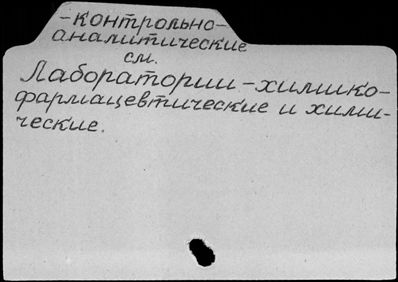 -контрольно-
аналитические
см.
Лаборатории-химико-
фармацевтические и хими-
ческие.